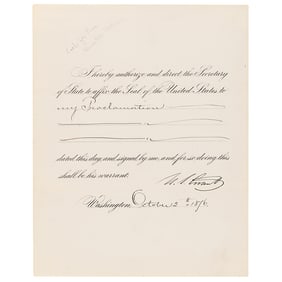 I hereby authorize and direct the Secretary
of State to affix the Seal of the United States to
my Proclamation
dated this day, and signed by me, and for so doing this
shall be his warrant.
U. S. Grant
Washington, October 2d 1876.